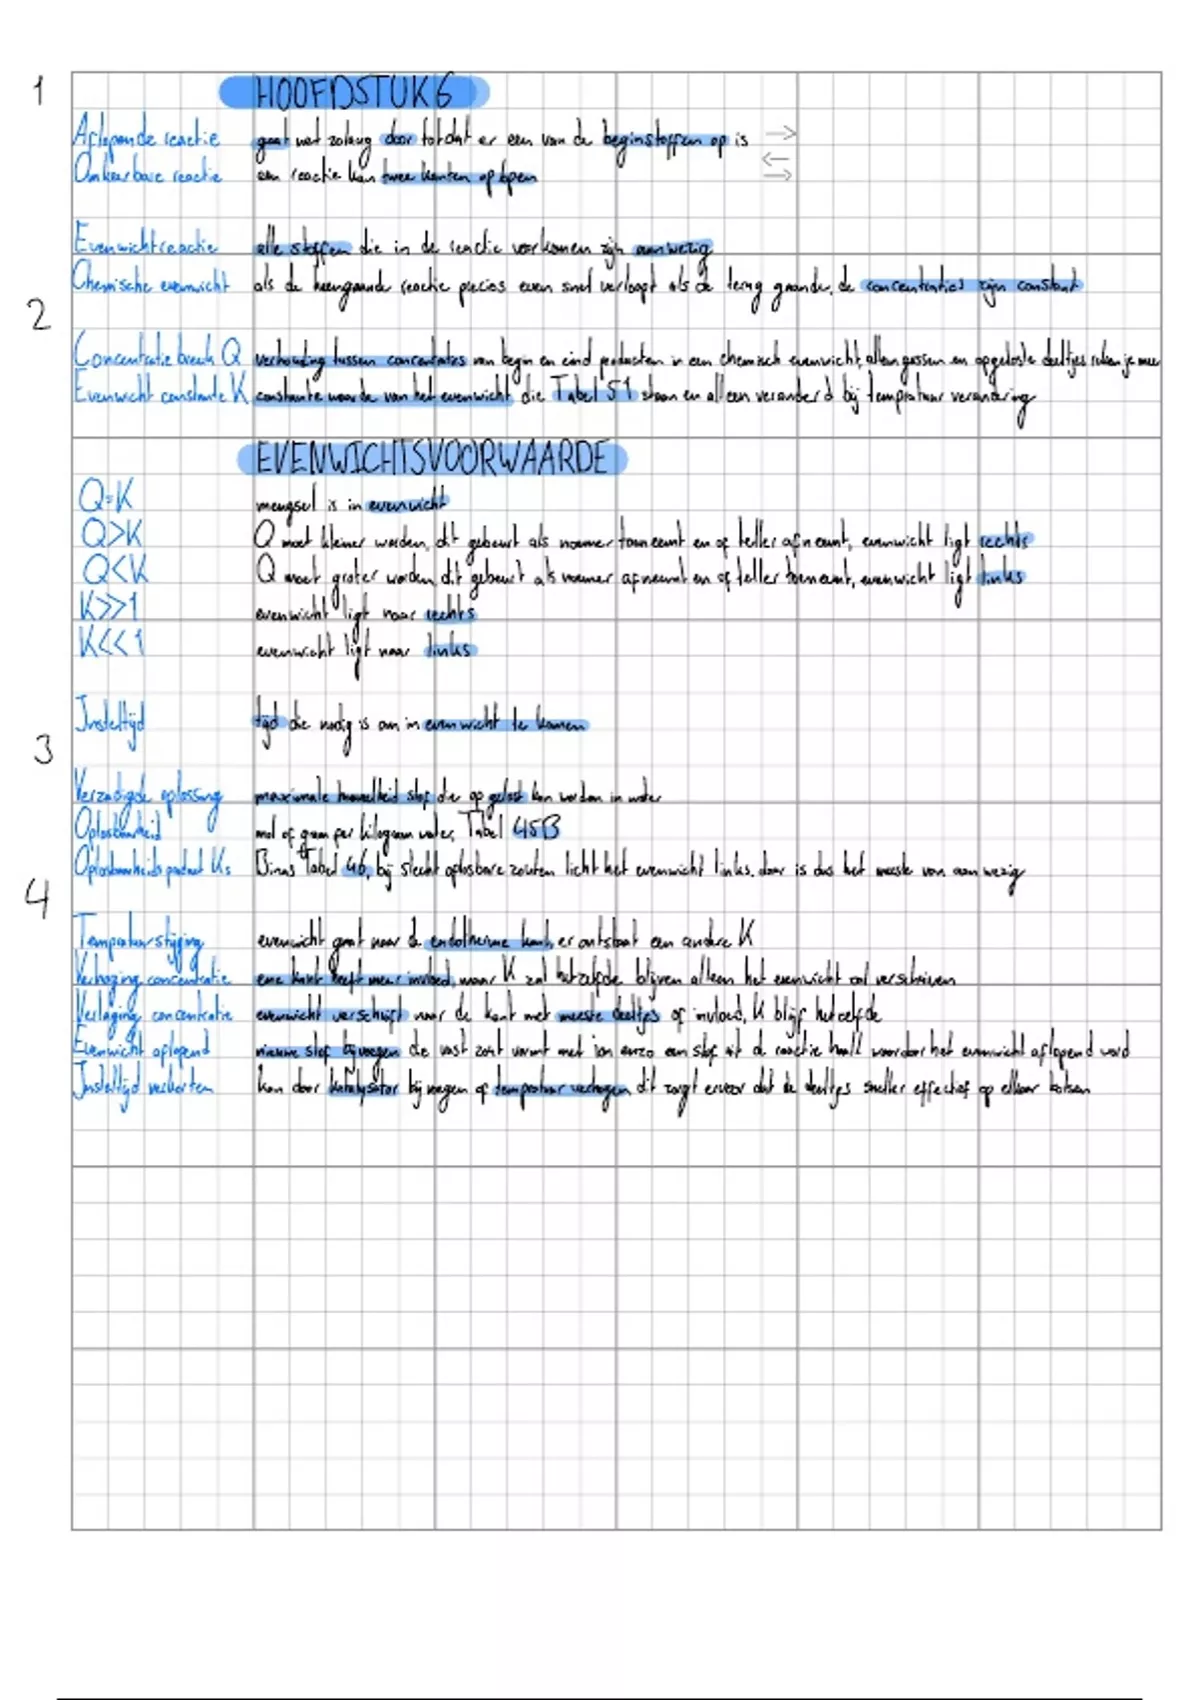 1
HOOFDSTUK 6
Aflopende reactie gaat net zolang door totdat er een van de beginstoffen op is →
Omkeerbare reactie een reactie kan twee kanten op lopen ⇆
Evenwichtreactie alle stoffen die in de reactie voorkomen zijn aanwezig
Chemische evenwicht als de heengaande reactie precies even snel verloopt als de terug gaande, de concentraties zijn constant
2
Concentratie breuk Q verhouding tussen concentraties van begin en eind producten in een chemisch evenwicht, alleen gassen en opgeloste deeltjes reken je mee
Evenwicht constante K constante waarde van het evenwicht die Tabel 51 staan en alleen veranderd bij tempratuur verandering
EVENWICHTSVOORWAARDE
Q=K mengsel is in evenwicht
Q>K Q moet kleiner worden, dit gebeurt als noemer toeneemt en of teller afneemt, evenwicht ligt rechts
Q<K Q moet groter worden, dit gebeurt als noemer afneemt en of teller toeneemt, evenwicht ligt links
K>>1 evenwicht ligt naar rechts
K<<1 evenwicht ligt naar links
Insteltijd tijd die nodig is om in evenwicht te komen
3
Verzadigde oplossing maximale hoeveelheid stof die op gelost kan worden in water
Oplosbaarheid mol of gram per kilogram water, Tabel 45B
Oplosbaarheids product Ks Binas Tabel 46, bij slecht oplosbare zouten licht het evenwicht links, daar is dus het meeste van aanwezig
4
Tempratuurstijging evenwicht gaat naar de endotherme kant, er ontstaat een andere K
Verhoging concentratie ene kant heeft meer invloed, maar K zal hetzelfde blijven alleen het evenwicht zal verschuiven
Verlaging concentratie evenwicht verschuift naar de kant met meeste deeltjes of invloed, K blijf hetzelfde
Evenwicht aflopend nieuwe stof bijvoegen die vast zout vormt met ion enzo een stof uit de reactie haalt waardoor het evenwicht aflopend word
Insteltijd verkorten kan door katalysator bijvoegen of tempratuur verhogen dit zorgt ervoor dat de deeltjes sneller effectief op elkaar botsen